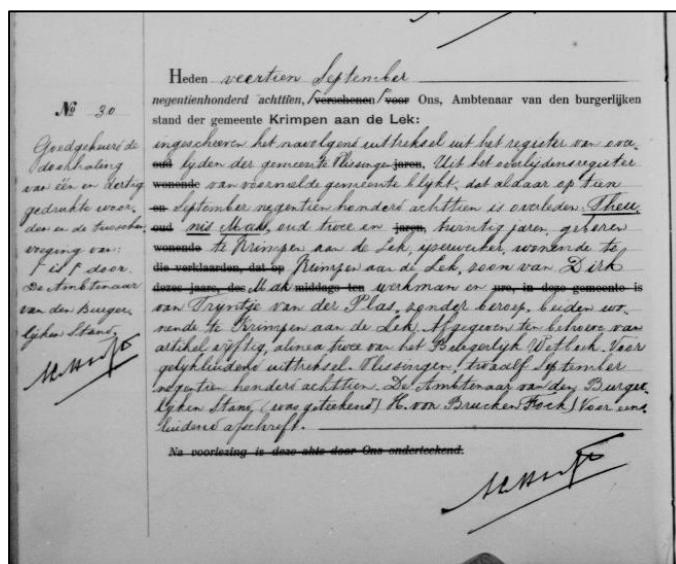 Nº 30
Goedgekeurd de
doorhaling
van één en dertig
gedrukte woor-
den en de tusschen
voeging van:
"is" door
De Ambtenaar
van den Burger-
lijken Stand,
Heden veertien September
negentienhonderd achttien, verschenen voor Ons, Ambtenaar van den burgerlijken
stand der gemeente Krimpen aan de Lek:
ingeschreven het navolgend uittreksel uit het register van over-
oud lijden der gemeente Vlissingen jaren, Uit het overlijdensregister
wonende van voormelde gemeente blijkt, dat aldaar op tien
en September negentien honderd achttien is overleden Theu
oud nis Mak, oud twee en jaren, twintig jaren, geboren
wonende te Krimpen aan de Lek, ijzerwerker, wonende te
die verklaarden, dat op Krimpen aan de Lek, zoon van Dirk
dezes jaars, des Mak middags ten werkman en ure, in deze gemeente is
van Tryntje van der Plas, zonder beroep, beiden wo-
nende te Krimpen aan de Lek. Afgegeven ten behoeve van
artikel vijftig, alinea twee van het Burgerlijk Wetboek. Voor
gelijkluidend uittreksel. Vlissingen, twaalf September
negentien honderd achttien. De Ambtenaar van den Burger
lijken Stand, (was geteekend) H. von Brucken Fock) Voor een
luidend afschrift.
Na voorlezing is deze akte door Ons onderteekend.